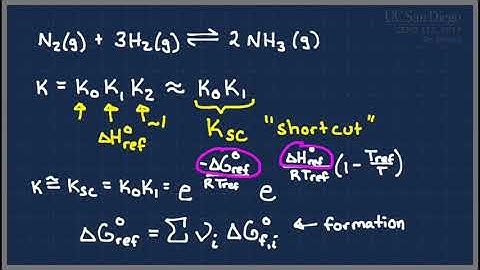 UC San Diego
N₂(g) + 3H₂(g) ⇌ 2 NH₃(g)
K = K₀K₁K₂ ≈ K₀K₁
~1
ΔH°ref
Ksc "shortcut"
K ≅ Ksc = K₀K₁ = e^(-ΔG°ref / RTref) e^(ΔH°ref / RTref (1 - Tref/T))
ΔG°ref = Σ νᵢ ΔG°f,i ← formation